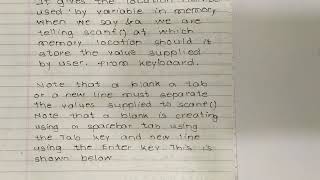 It gives the location
used by variable in memory
when we say &a we are
telling scanf() at which
memory location should it
store the value supplied
by user. From keyboard.
Note that a blank a tab
or a new line must separate
the values supplied to scanf()
Note that a blank is creating
using a spacebar tab using
the Tab key and new line
using the Enter key. This is
shown below